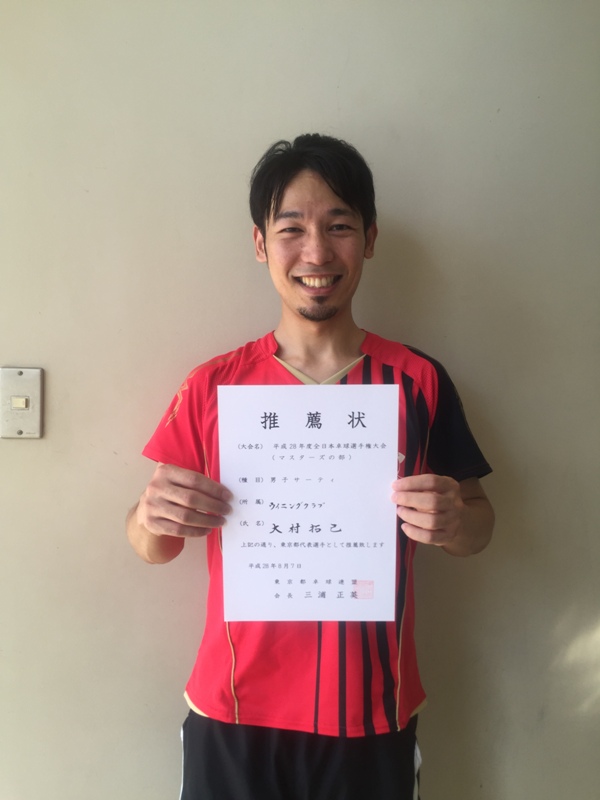 推薦状
(大会名) 平成28年度全日本卓球選手権大会
(マスターズの部)
(種目) 男子サーティ
(所属) ウイニングクラブ
(氏名) 大村拓己
上記の通り、東京都代表選手として推薦致します
平成28年8月7日
東京都卓球連盟
会長 三浦正英